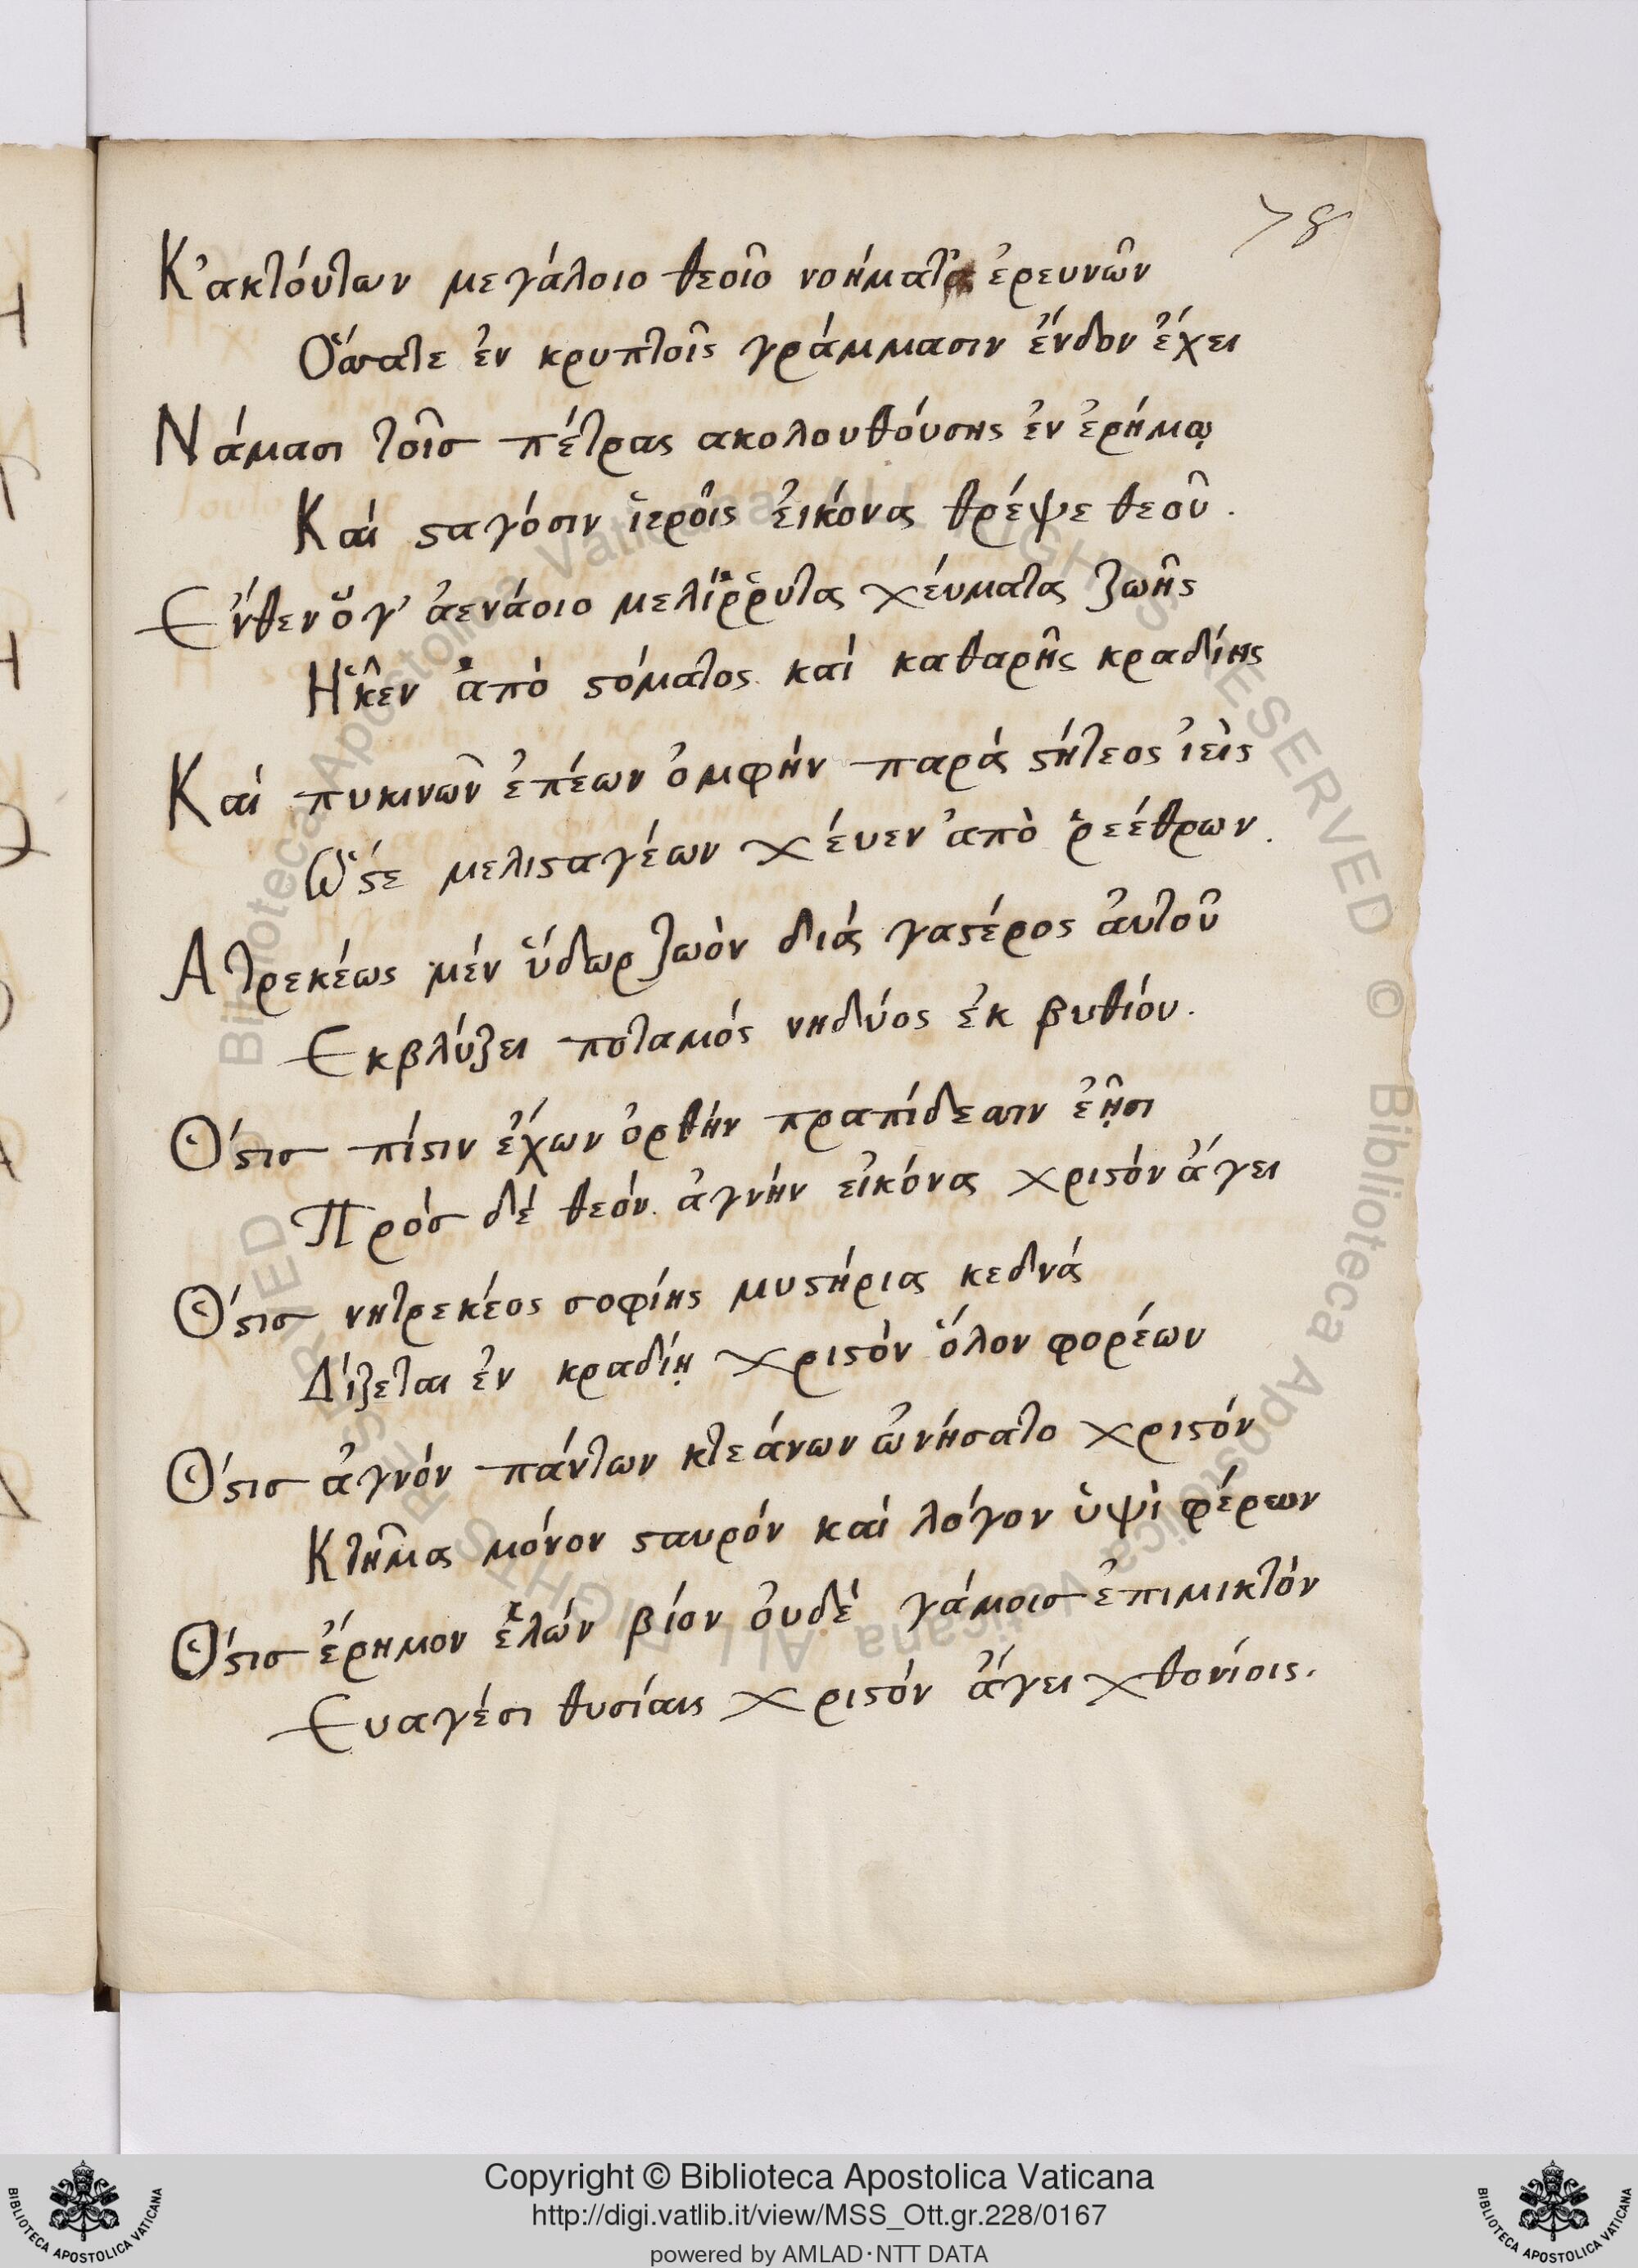 78
Κ'ακτόυτων μεγάλοιο θεοῖο νοήματα ἐρευνῶν
Ὅσσατε ἐν κρυπτοῖς γράμμασιν ἔνδον ἔχει
Νάμασι τοῖσ πέτρας ακολουθόυσης ἐν ἐρήμῳ
Και ϛαγόσιν ἱεροῖς ἐικόνα θρέψε θεοῦ.
Ἔνθεν ὅγ' ἀενάοιο μελίῤῥυτα χέυματα ζωῆς
Ἧκεν ἀπὸ ϛόματος καί καθαρῆς κραδίης
Καί πυκινῶν ἐπέων ὀμφήν παρά ϛήτεος ἰεὶς
Ὥϛε μελιϛαγέων χέυεν ἀπὸ ῥεέθρων.
Ατρεκέως μέν ὕδωρ ζωὸν διά γαϛέρος ἀυτοῦ
Εκβλύζει ποταμός νηδύος ἐκ βυθίου.
Ὅϛισ πίϛιν ἔχων ὀρθήν πραπίδεσιν ἑῇσι
Πρόσ δέ θεόν ἁγνήν εἰκόνα χριϛόν ἄγει
Ὅϛισ νητρεκέος σοφίης μυϛήρια κεδνά
Δίζεται ἐν κραδίῃ χριϛὸν ὅλον φορέων
Ὅϛισ ἁγνόν πάντων κτεάνων ὠνήσατο χριϛόν
Κτῆμα μόνον ϛαυρόν καί λόγον ὑψὶ φέρων
Ὅϛισ ἐρημον ἑλών βίον ὀυδέ γάμοισ ἐπιμικτόν
Ευαγέσι θυσίαις χριϛόν ἄγει χθονίοις.
Copyright © Biblioteca Apostolica Vaticana
http://digi.vatlib.it/view/MSS_Ott.gr.228/0167
powered by AMLAD·NTT DATA